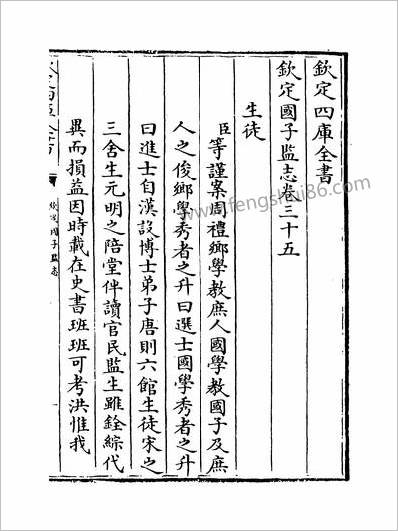 欽定四庫全書
欽定國子監志卷三十五
生徒
臣等謹案周禮鄉學教庶人國學教國子及庶
人之俊鄉學秀者之升曰選士國學秀者之升
曰進士自漢設博士弟子唐則六館生徒宋之
三舍生元明之陪堂伴讀官民監生雖銓綜代
異而損益因時載在史書班班可考洪惟我
欽定四庫全書
欽定國子監志
一
www.fengshui86.com